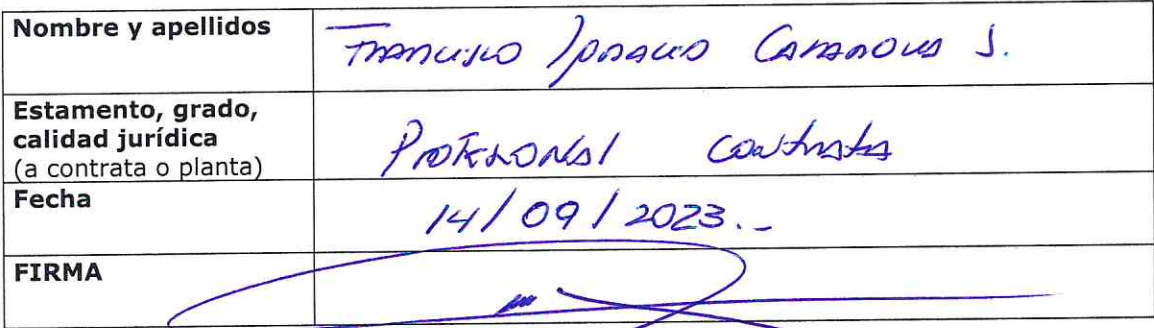 Nombre y apellidos
Francisco Ignacio Casanova J.
Estamento, grado,
calidad jurídica
(a contrata o planta)
Profesional contrata
Fecha
14/09/2023.-
FIRMA